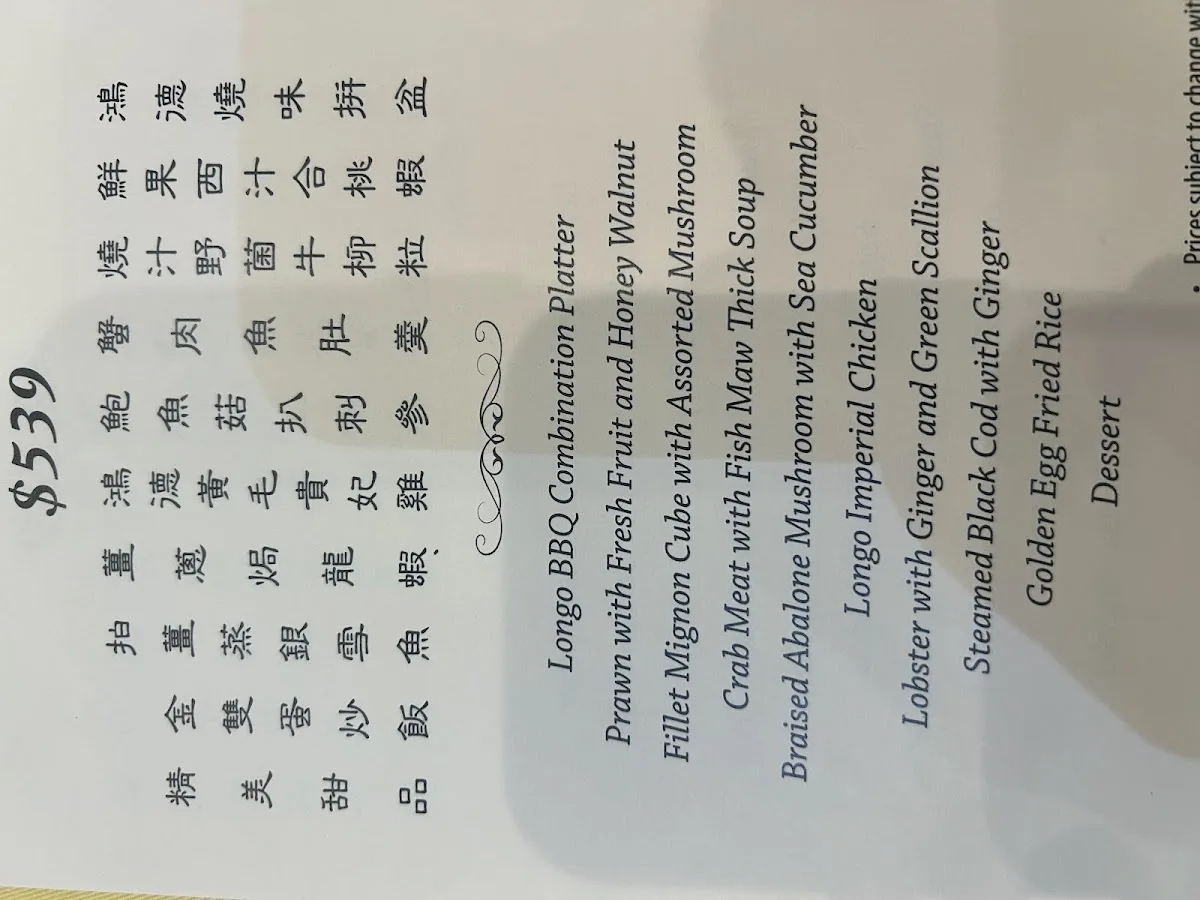 $539
鴻德燒味拼盆
鮮果西汁合桃蝦
燒汁野菌牛柳粒
蟹肉魚肚羹
鮑魚菇扒刺參
鴻德黃毛貴妃雞
薑蔥焗龍蝦
拍薑蒸銀雪魚
金雙蛋炒飯
精美甜品
Longo BBQ Combination Platter
Prawn with Fresh Fruit and Honey Walnut
Fillet Mignon Cube with Assorted Mushroom
Crab Meat with Fish Maw Thick Soup
Braised Abalone Mushroom with Sea Cucumber
Longo Imperial Chicken
Lobster with Ginger and Green Scallion
Steamed Black Cod with Ginger
Golden Egg Fried Rice
Dessert
• Prices subject to change wit